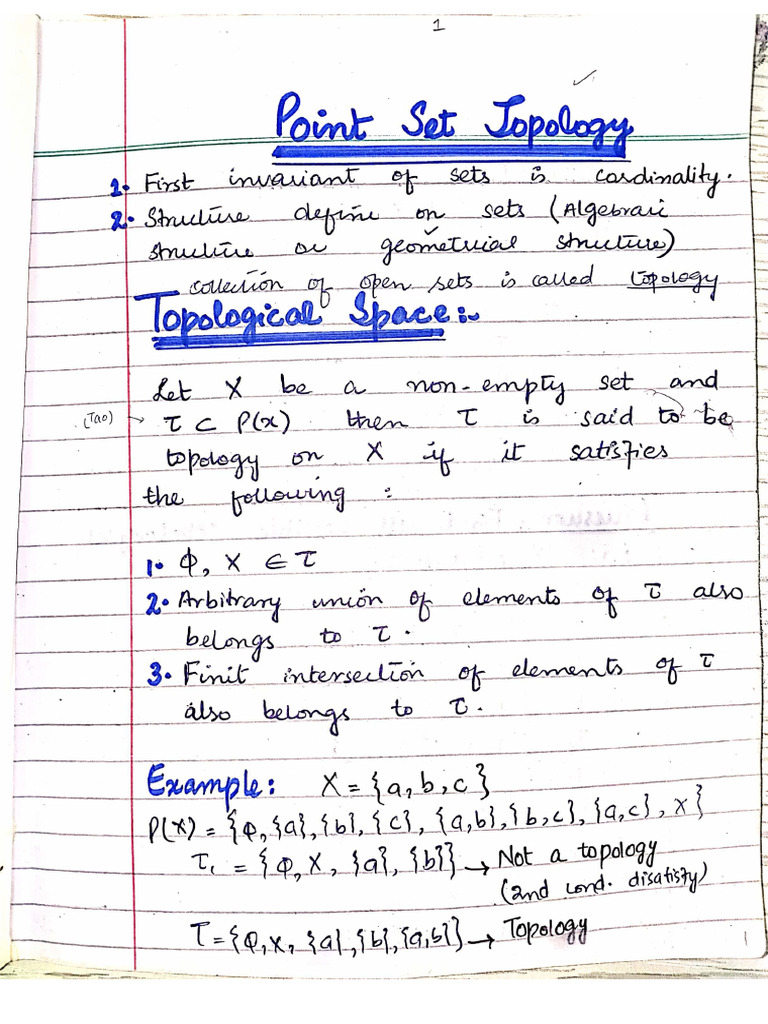 1
Point Set Topology
1. First invariant of sets is cardinality.
2. Structure define on sets (Algebraic
structure or geometrical structure)
collection of open sets is called topology
Topological Space:-
Let X be a non-empty set and
(Tao) → τ ⊂ P(x) then τ is said to be
topology on X if it satisfies
the following :
1. Φ, X ∈ τ
2. Arbitrary union of elements of τ also
belongs to τ.
3. Finit intersection of elements of τ
also belongs to τ.
Example: X = {a, b, c}
P(X) = {Φ, {a}, {b}, {c}, {a,b}, {b,c}, {a,c}, X}
τ₁ = {Φ, X, {a}, {b}} → Not a topology
(2nd cond. disatisfy)
τ = {Φ, X, {a}, {b}, {a,b}} → Topology
1